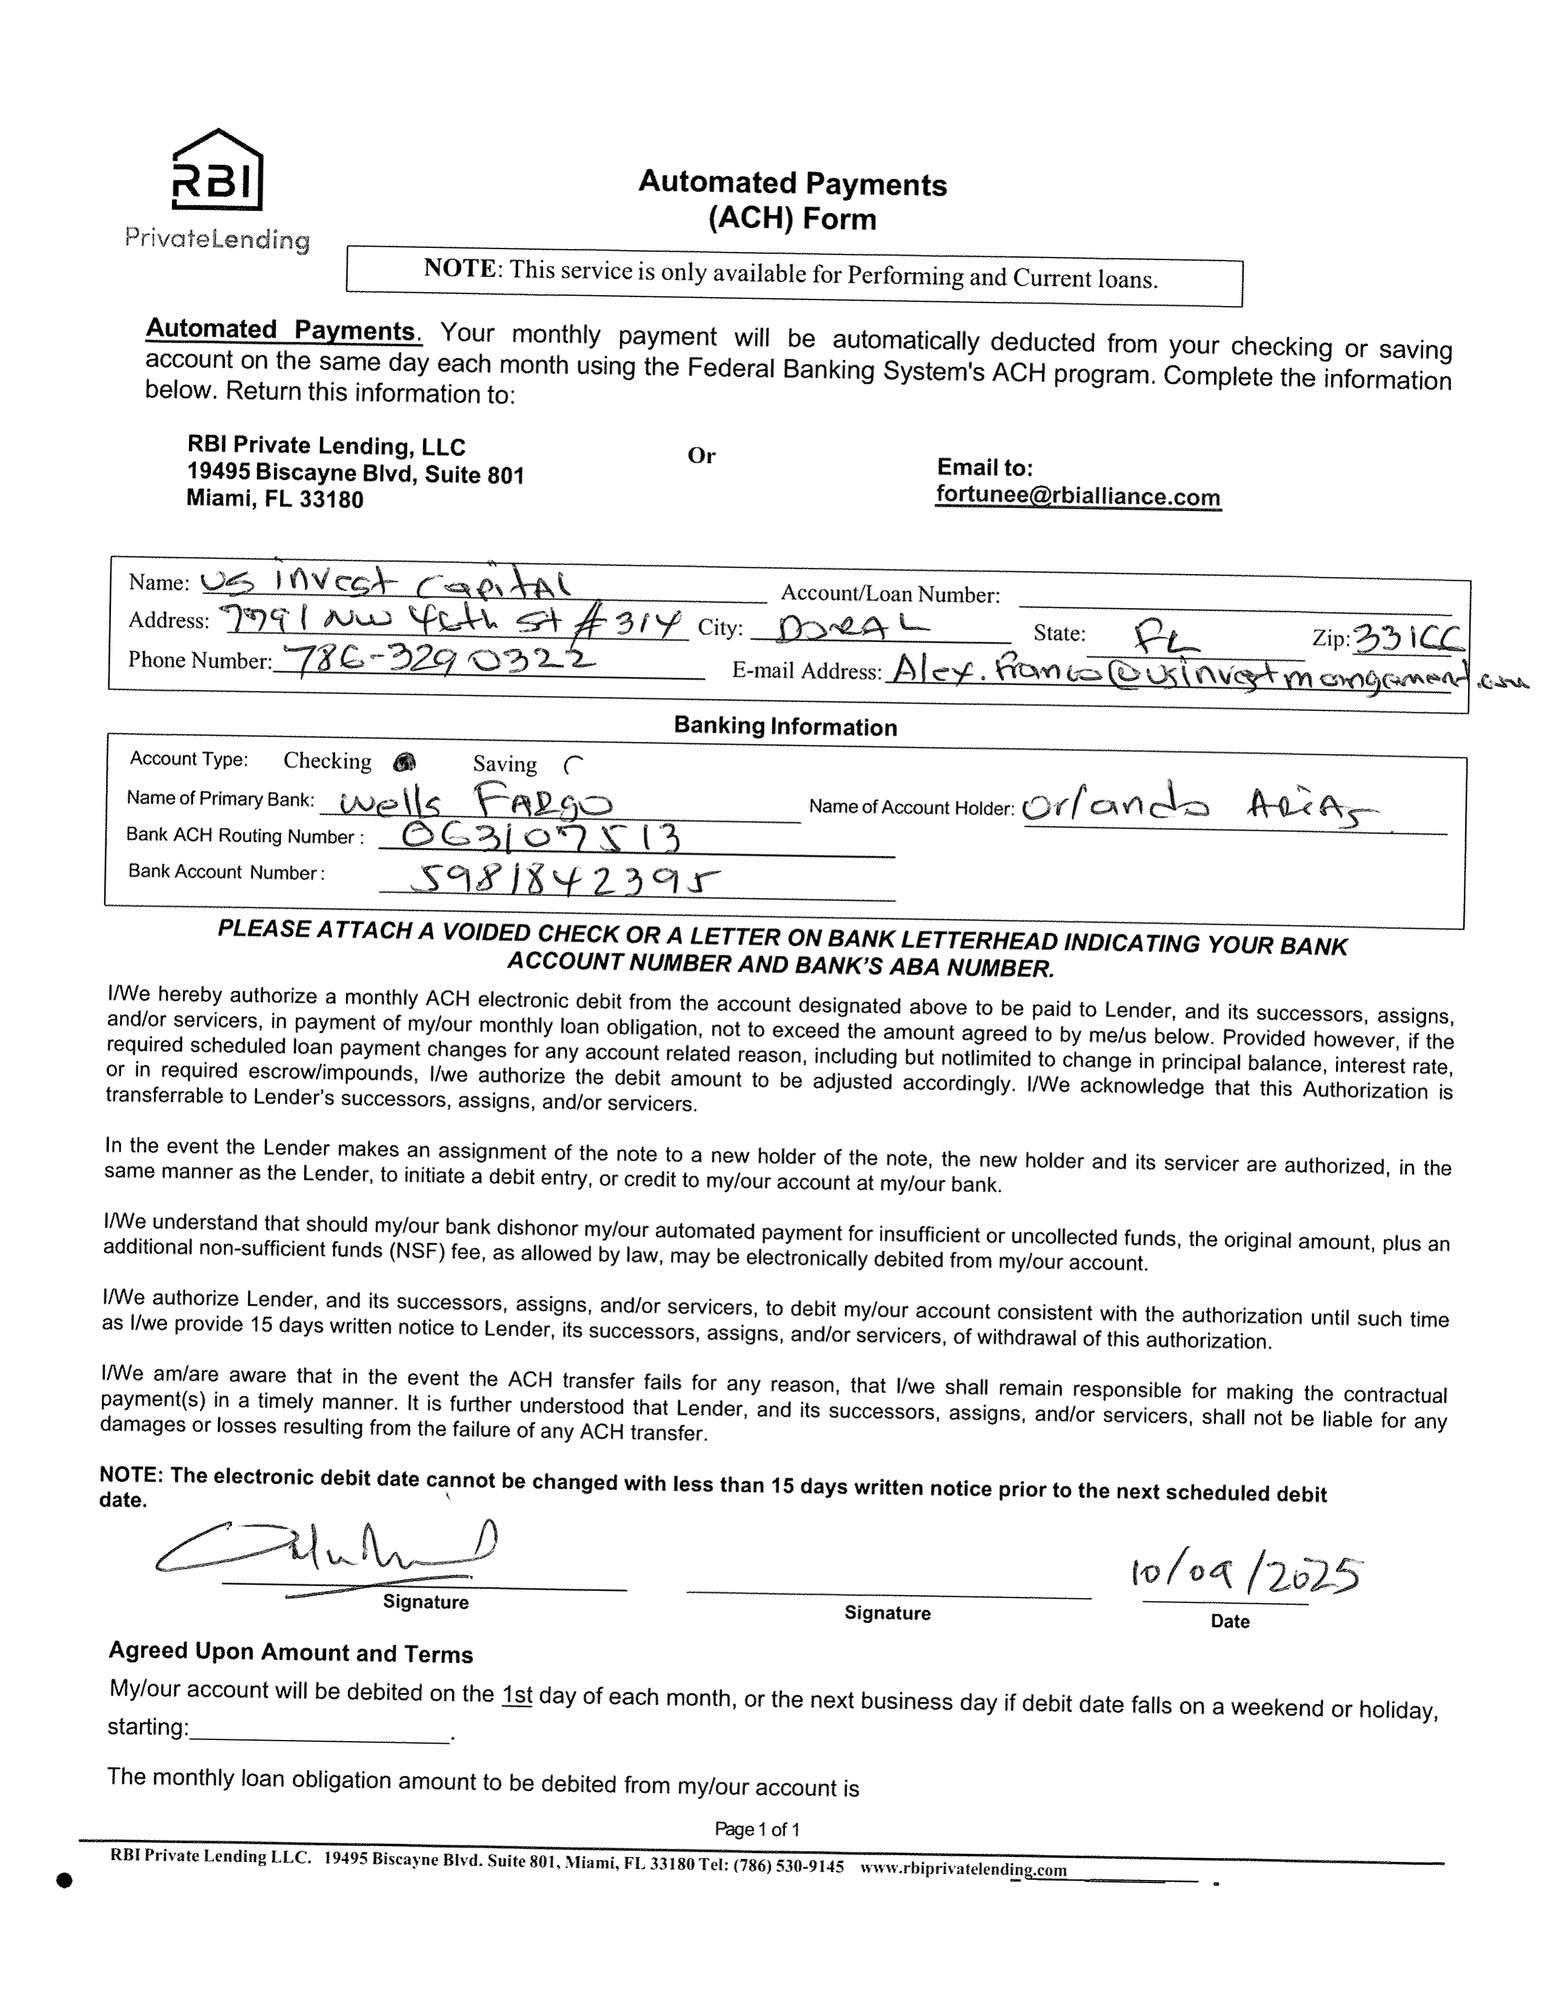 RBI
PrivateLending
Automated Payments
(ACH) Form
NOTE: This service is only available for Performing and Current loans.
Automated Payments. Your monthly payment will be automatically deducted from your checking or saving
account on the same day each month using the Federal Banking System's ACH program. Complete the information
below. Return this information to:
RBI Private Lending, LLC
19495 Biscayne Blvd, Suite 801
Miami, FL 33180
Or
Email to:
fortunee@rbialliance.com
Name: US invest CapitAL Account/Loan Number:
Address: 7791 NW 46th St # 314 City: DORAL State: FL Zip: 33166
Phone Number: 786-329 0322 E-mail Address: Alex.franco@usinvestmangament.com
Banking Information
Account Type: Checking Saving
Name of Primary Bank: Wells FARgO Name of Account Holder: Orlando ARiAs
Bank ACH Routing Number : 063107513
Bank Account Number : 5981842395
PLEASE ATTACH A VOIDED CHECK OR A LETTER ON BANK LETTERHEAD INDICATING YOUR BANK
ACCOUNT NUMBER AND BANK'S ABA NUMBER.
I/We hereby authorize a monthly ACH electronic debit from the account designated above to be paid to Lender, and its successors, assigns,
and/or servicers, in payment of my/our monthly loan obligation, not to exceed the amount agreed to by me/us below. Provided however, if the
required scheduled loan payment changes for any account related reason, including but notlimited to change in principal balance, interest rate,
or in required escrow/impounds, I/we authorize the debit amount to be adjusted accordingly. I/We acknowledge that this Authorization is
transferrable to Lender's successors, assigns, and/or servicers.
In the event the Lender makes an assignment of the note to a new holder of the note, the new holder and its servicer are authorized, in the
same manner as the Lender, to initiate a debit entry, or credit to my/our account at my/our bank.
I/We understand that should my/our bank dishonor my/our automated payment for insufficient or uncollected funds, the original amount, plus an
additional non-sufficient funds (NSF) fee, as allowed by law, may be electronically debited from my/our account.
I/We authorize Lender, and its successors, assigns, and/or servicers, to debit my/our account consistent with the authorization until such time
as I/we provide 15 days written notice to Lender, its successors, assigns, and/or servicers, of withdrawal of this authorization.
I/We am/are aware that in the event the ACH transfer fails for any reason, that I/we shall remain responsible for making the contractual
payment(s) in a timely manner. It is further understood that Lender, and its successors, assigns, and/or servicers, shall not be liable for any
damages or losses resulting from the failure of any ACH transfer.
NOTE: The electronic debit date cannot be changed with less than 15 days written notice prior to the next scheduled debit
date.
10/09/2025
Signature Signature Date
Agreed Upon Amount and Terms
My/our account will be debited on the 1st day of each month, or the next business day if debit date falls on a weekend or holiday,
starting: .
The monthly loan obligation amount to be debited from my/our account is
Page 1 of 1
RBI Private Lending LLC. 19495 Biscayne Blvd. Suite 801, Miami, FL 33180 Tel: (786) 530-9145 www.rbiprivatelending.com